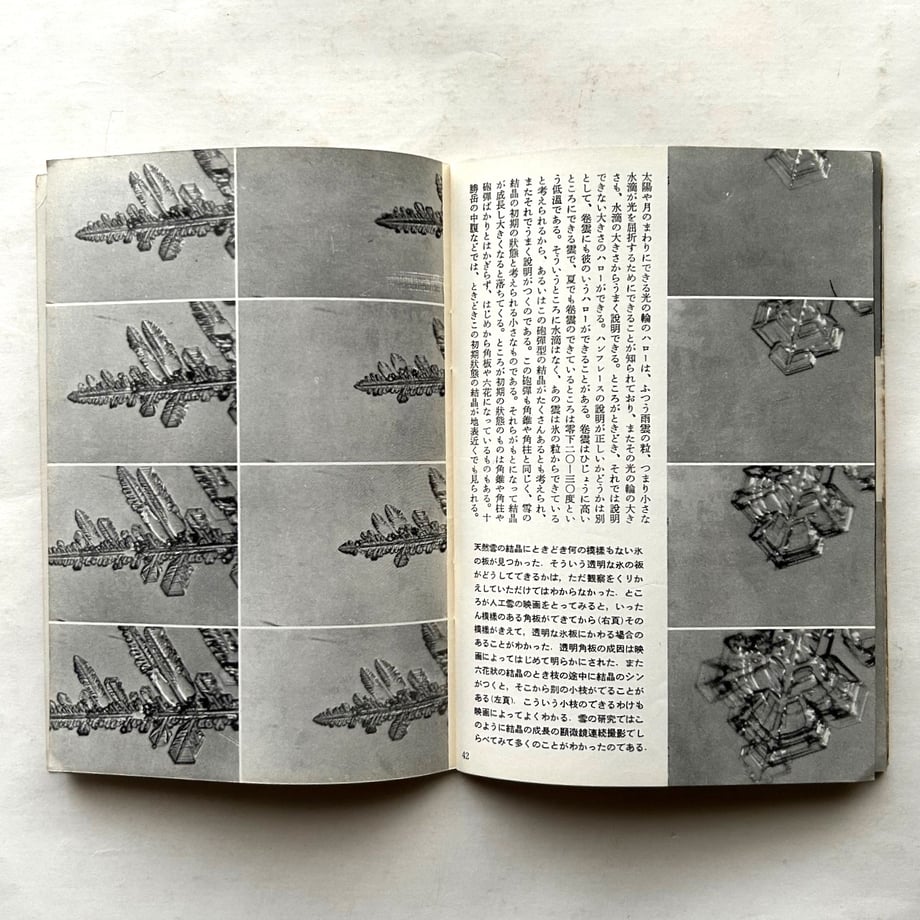 太陽や月のまわりにできる光の輪のハローは、ふつう雨雲の粒、つまり小さな
水滴が光を屈折するためにできることが知られており、またその光の輪の大き
さも、水滴の大きさからうまく説明できる。ところがときどき、それでは説明
できない大きさのハローができる。ハンフレースの説明が正しいかどうかは別
として、卷雲にも彼のいうハローができることがある。卷雲はひじょうに高い
ところにできる雲で、夏でも卷雲のできているところは零下二〇—三〇度とい
う低溫である。そういうところに水滴はなく、あの雲は氷の粒からできている
と考えられるから、あるいはこの砲彈型の結晶がたくさんあるとも考えられ、
またそれでうまく說明がつくのである。この砲彈も角錐や角柱と同じく、雪の
結晶の初期の狀態と考えられる小さなものである。それらがもとになって結晶
が成長し大きくなると落ちてくる。ところが初期の狀態のものは角錐や角柱や
砲彈ばかりとはかぎらず、はじめから角板や六花になっているものもある。十
勝岳の中腹などでは、ときどきこの初期狀態の結晶が地表近くでも見られる。
天然雪の結晶にときどき何の模樣もない氷
の板が見つかった．そういう透明な氷の板
がどうしてできるかは，ただ観察をくりか
えしていただけではわからなかった．とこ
ろが人工雪の映画をとってみると，いった
ん模樣のある角板ができてから(右頁)その
模樣がきえて，透明な氷板にかわる場合の
あることがわかった．透明角板の成因は映
画によってはじめて明らかにされた．また
六花狀の結晶のとき枝の途中に結晶のシン
がつくと，そこから別の小枝がでることが
ある(左頁)．こういう小枝のできるわけも
映画によってよくわかる．雪の研究ではこ
のように結晶の成長の顕微鏡連続撮影でし
らべてみて多くのことがわかったのである．
42